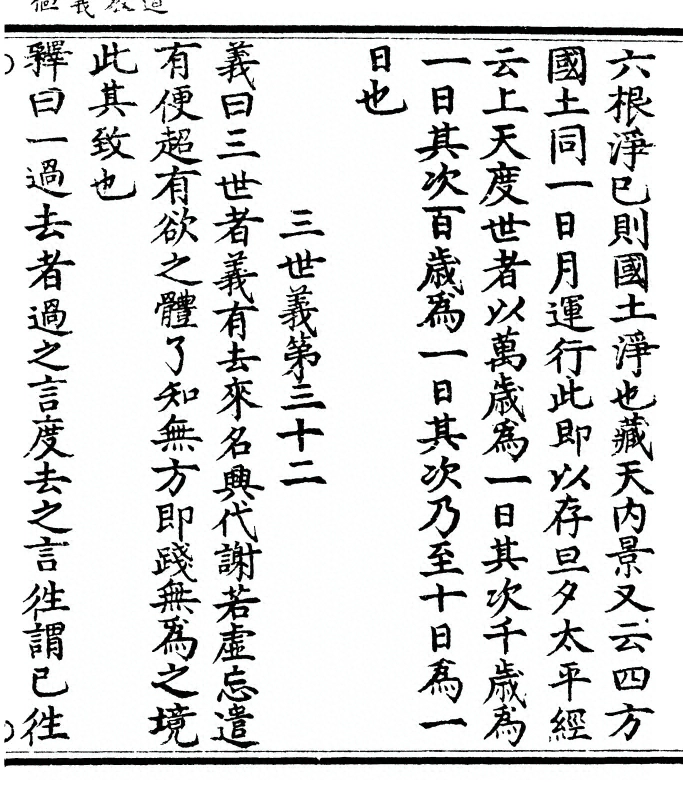 六根淨已則國土淨也藏天內景又云四方
國土同一日月運行此即以存旦夕太平經
云上天度世者以萬歲為一日其次千歲為
一日其次百歲為一日其次乃至十日為一
日也
三世義第三十二
義曰三世者義有去來名興代謝若虛忘遣
有便超有欲之體了知無方即踐無為之境
此其致也
釋曰一過去者過之言度去之言徃謂已徃